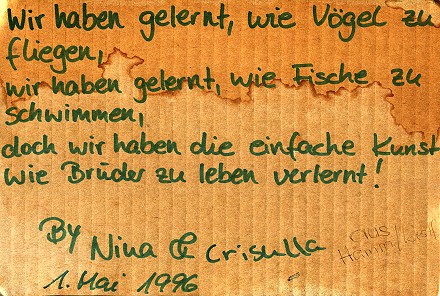 Wir haben gelernt, wie Vögel zu
fliegen,
wir haben gelernt, wie Fische zu
schwimmen,
doch wir haben die einfache Kunst
wie Brüder zu leben verlernt!
By Nina &
1. Mai 1996
aus